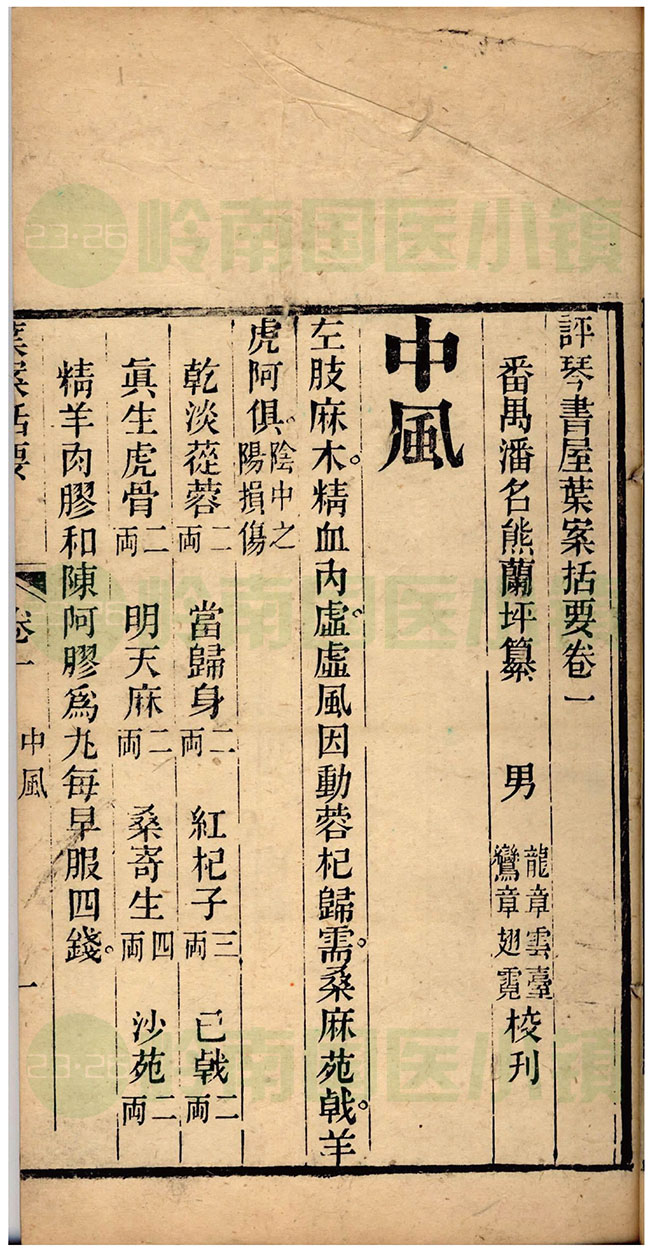 評琴書屋葉案括要卷一
番禺潘名熊蘭坪纂 男 龍章雲臺 鸞章翅霓 校刊
中風
左肢麻木。精血內虛。虛風因動蓉杞歸需。桑麻苑戟。羊
虎阿俱。陰中之陽損傷
乾淡蓯蓉二両 當歸身二両 紅杞子三両 巳戟二両
眞生虎骨二両 明天麻二両 桑寄生四両 沙苑二両
精羊肉膠和陳阿膠爲丸每早服四錢。
葉案括要 卷一 中風 一
23·26 岭南国医小镇
23·26 岭南国医小镇
23·26 岭南国医小镇